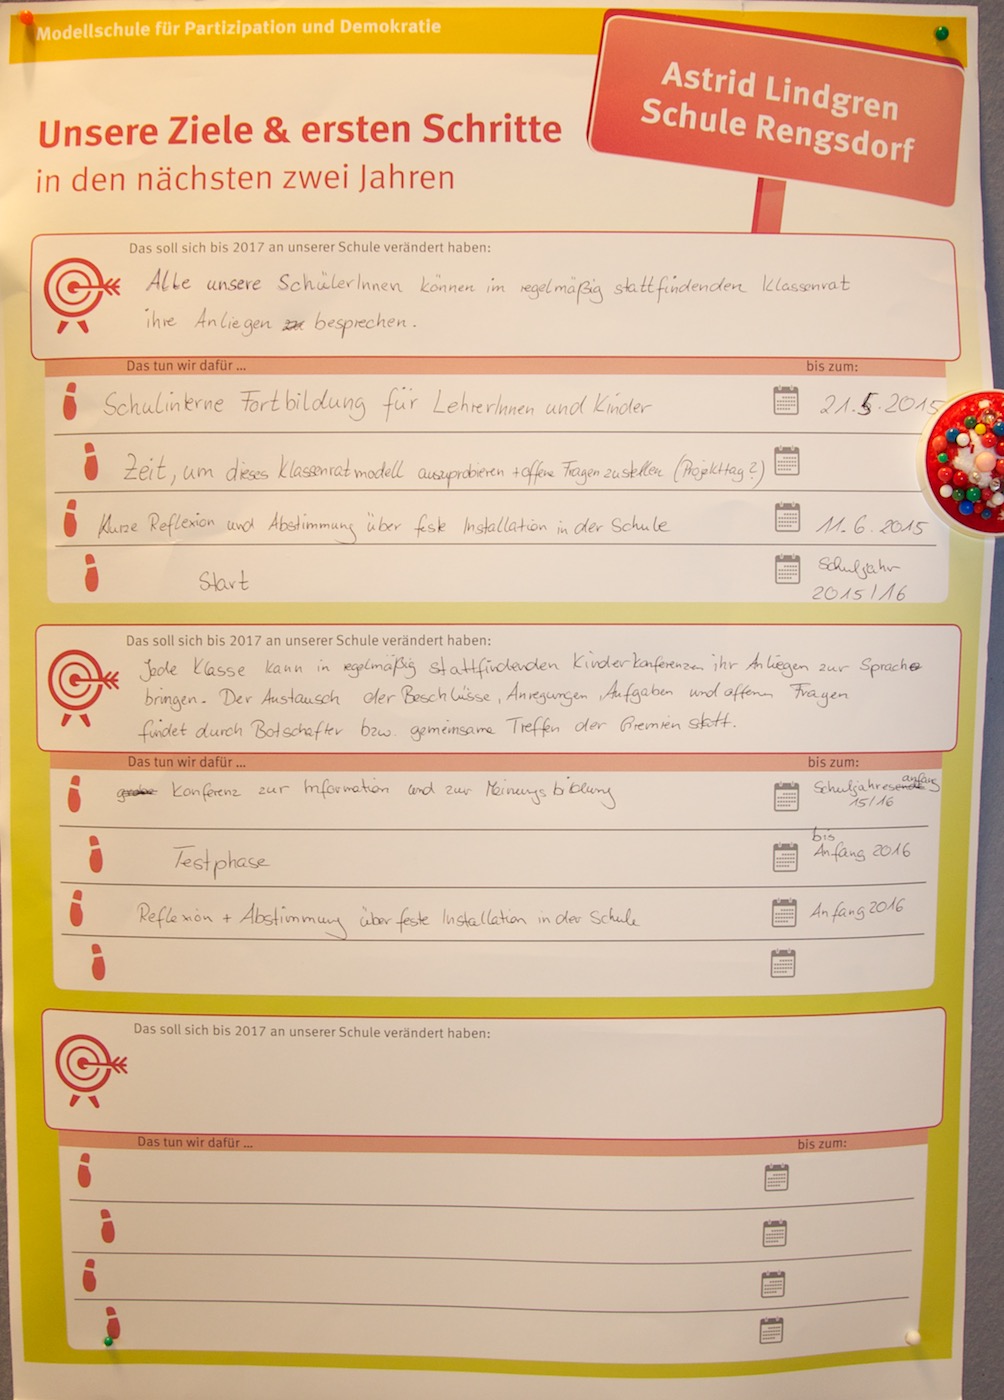 Modellschule für Partizipation und Demokratie
Astrid Lindgren
Schule Rengsdorf
Unsere Ziele & ersten Schritte
in den nächsten zwei Jahren
Das soll sich bis 2017 an unserer Schule verändert haben:
Alle unsere SchülerInnen können im regelmäßig stattfindenden Klassenrat
ihre Anliegen besprechen.
Das tun wir dafür ... bis zum:
Schulinterne Fortbildung für LehrerInnen und Kinder 21.5.2015
Zeit, um dieses Klassenratmodell auszuprobieren + offene Fragen zu stellen (Projekttag?)
Kurze Reflexion und Abstimmung über feste Installation in der Schule 11.6.2015
Start Schuljahr
2015/16
Das soll sich bis 2017 an unserer Schule verändert haben:
Jede Klasse kann in regelmäßig stattfindenden Kinderkonferenzen ihr Anliegen zur Sprache
bringen. Der Austausch der Beschlüsse, Anregungen, Aufgaben und offenen Fragen
findet durch Botschafter bzw. gemeinsame Treffen der Gremien statt.
Das tun wir dafür ... bis zum:
Konferenz zur Information und zur Meinungsbildung Schuljahresanfang
15/16
bis
Testphase Anfang 2016
Reflexion + Abstimmung über feste Installation in der Schule Anfang 2016
Das soll sich bis 2017 an unserer Schule verändert haben:
Das tun wir dafür ... bis zum: